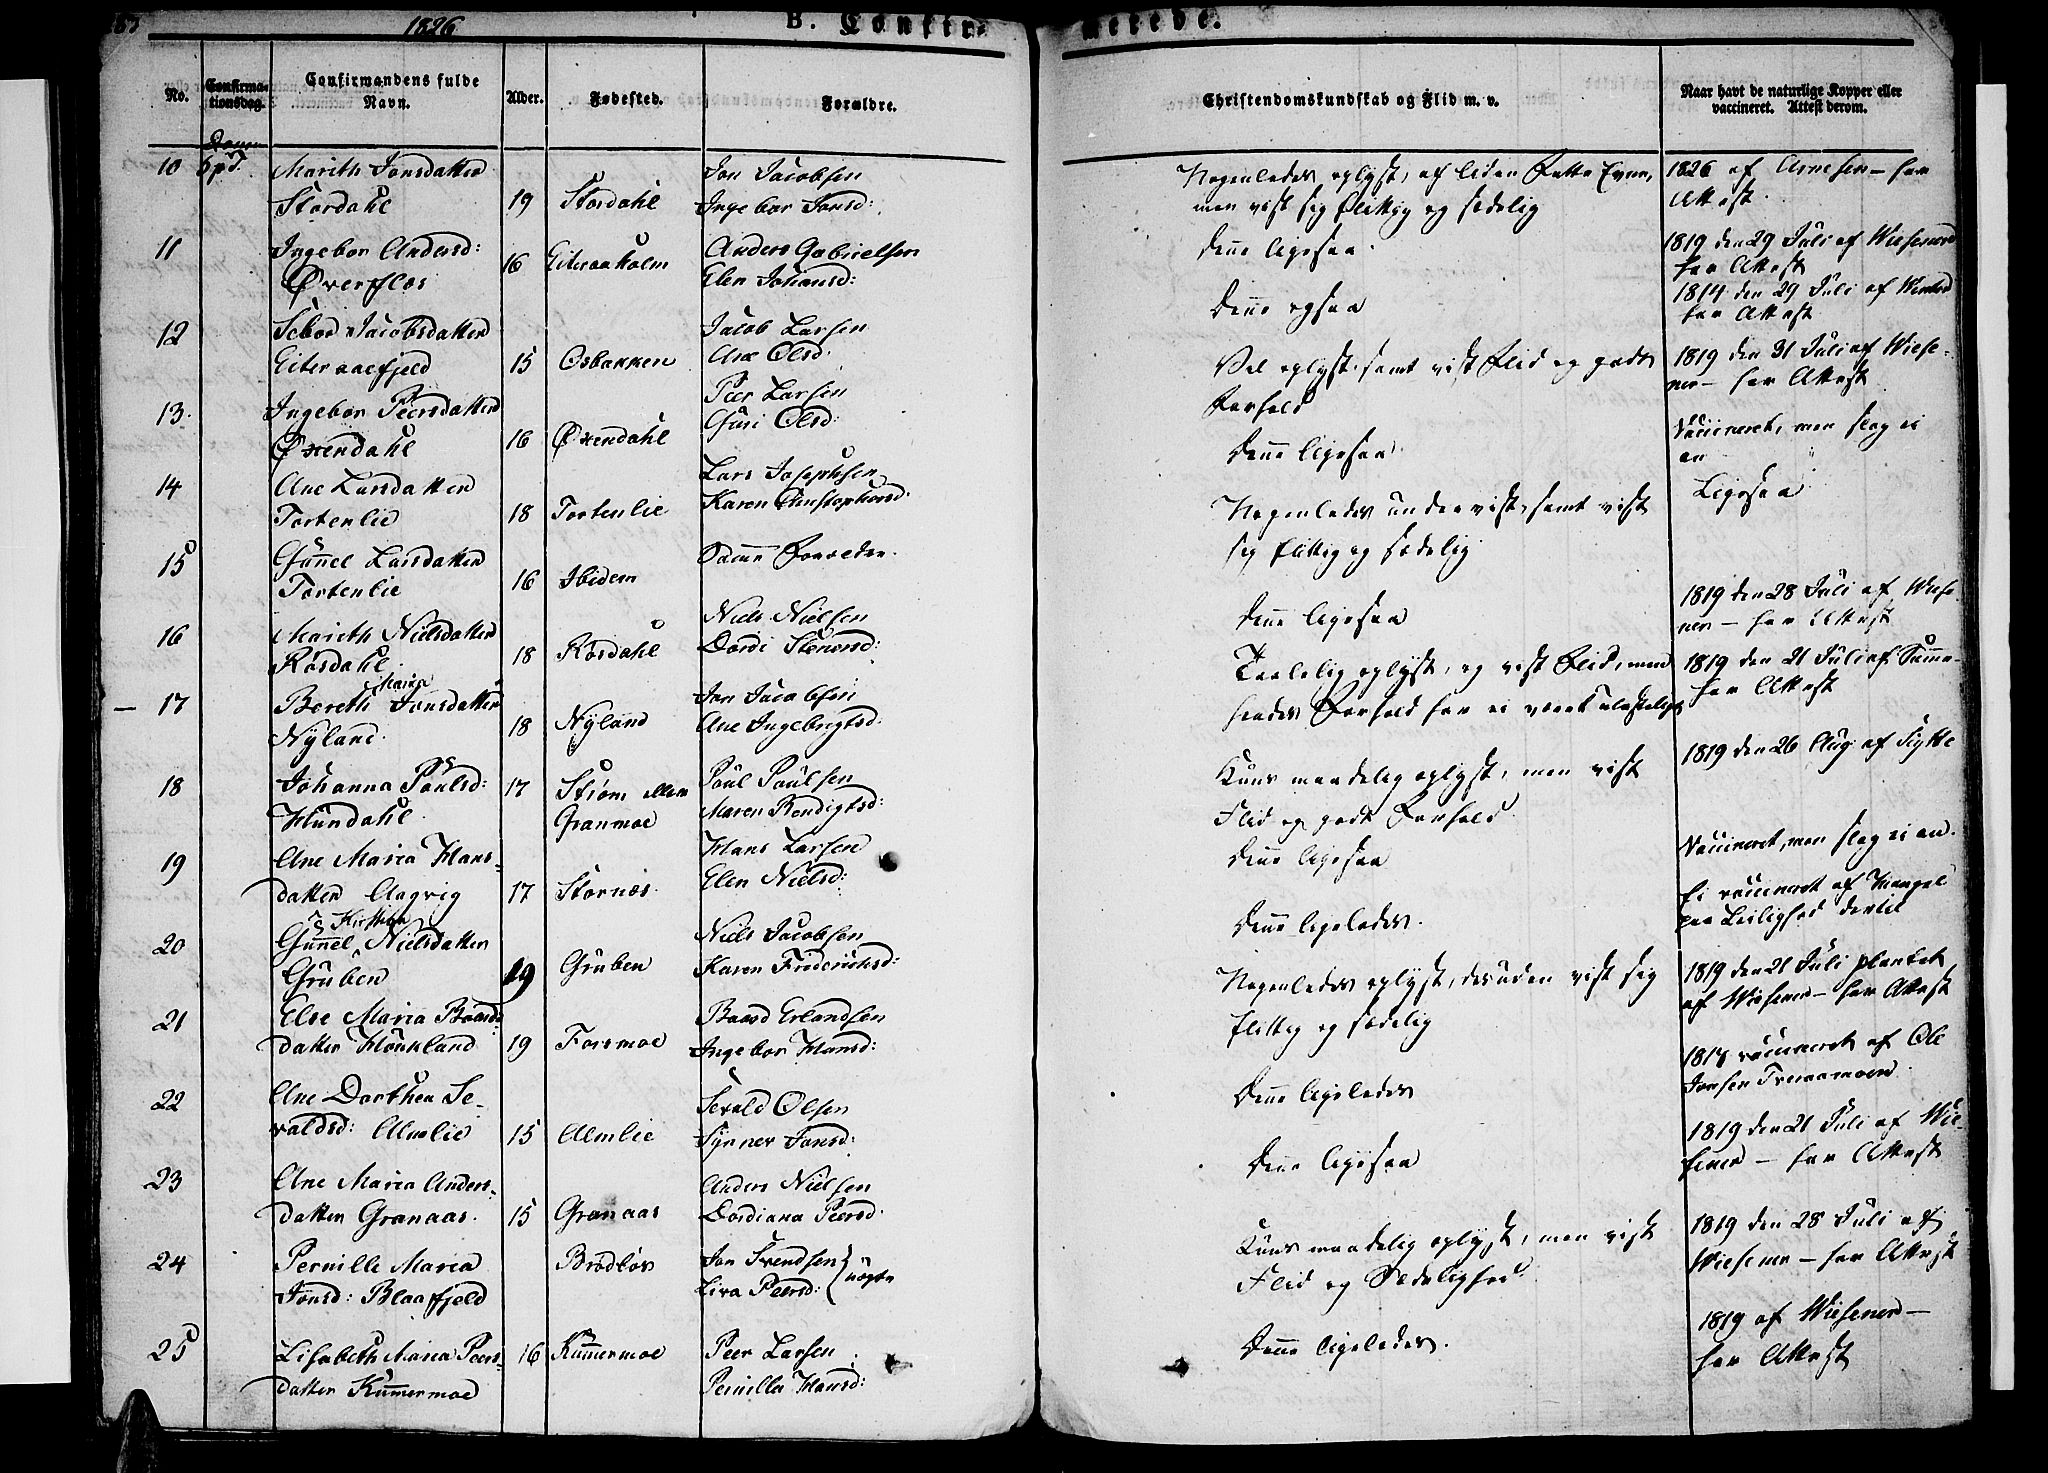 1826
B. Confirmerede.
No.
Confirma-
tionsdag.
Confirmandens fulde
Navn.
Alder.
Fødested.
Forældre.
Christendomskundskab og Flid m. v.
Naar havt de naturlige Kopper eller
vaccineret. Attest derom.
10 Marith Jonsdatter
Stordahl 19 Stordahl
Jon Jacobsen
Ingebor Jonsd:
Nogenledes oplyst, af liden Fatte Evne,
men vist sig flittig og sædelig
1826 af Arnesen – har
Attest.
11 Ingebor Andersd:
Øverflos 16 Eiteraaholm
Anders Gabrielsen
Elen Johansd:
Dene ligesaa.
1819 den 29 Juli af Wiesener
har Attest
12 Sebor Jacobsdatter
Eiteraaefjeld 15 Osbakken
Jacob Larsen
Ane Olsd:
Dene ogsaa
1814 den 29 Juli af
har Attest
13. Ingebor Peersdatter
Øxendahl 16 Øxendahl
Peer Larsen
Guri Olsd:
Vel oplyst, samt vist Flid og godt
Forhold
1819 den 31 Juli af Wiese-
ner – har Attest
14 Ane Larsdatter
Tortenlie 18 Tortenlie
Lars Josephsen
Karen Christophersd:
Dene ligesaa.
Vaccineret, men slog ei
an
15 Gunnel Larsdatter
Tortenlie 16 Ibidem
Samme Forældre.
Nogenledes undervist, samt vist
sig flittig og sædelig
Ligesaa
16 Marith Nielsdatter
Røsdahl 18 Røsdahl
Niels Nielsen
Dordi Stenersd:
Dene ligesaa
1819 den 28 Juli af Wiese-
ner – har Attest
17 Bereth Maria Jonsdatter
Nÿland. 18 Nÿland
Jon Jacobsen
Ane Ingebrigtsd:
Taalelig oplyst, og vist Flid, men
hendes Forhold har ei været ulasteligt
1819 den 21 Juli af Samme
har Attest
18 Johanna Paulsd:
Hundahl. 17 Strøm ellem
Granmoe
Poul Poulsen
Maren Bendigtsd:
Kuns maadelig oplyst, men vist
Flid og godt Forhold.
1819 den 26 Aug af
19 Ane Maria Hans-
datter Aagvig 17 Stornes.
Hans Larsen
Elen Nielsd:
Dene ligesaa
Vaccineret, men slog ei an.
20 Gunnel Kirstina Nielsdatter
Gruben 19 Gruben
Niels Jacobsen
Karen Friderichsd:
Dene ligeledes.
Ei vaccineret af Mangel
paa Leilighed dertil
21 Else Maria Baards-
datter Houkland 19 Forsmoe
Baard Erlandsen
Ingebor Hansd:
Nogenledes oplyst, desuden vist sig
flittig og sædelig
1819 den 21 Juli plantet
af Wiesener – har Attest
22 Ane Dorthea Se-
valdsd: Almlie 15 Almlie
Sevald Olsen
Synner Jonsd:
Dene ligeledes
1818 vaccineret af Ole
Jonsen
23 Ane Maria Anders-
datter Granaas. 15 Granaas
Anders Nielsen
Dordiana Peersd.
Dene ligesaa
1819 den 21 Juli af Wie-
sener – har Attest
24 Pernille Maria
Jonsd: Blaafjeld
Jon Svendsen
Liva Peersd: } uægte
Kuns maadelig oplyst, men vist
Flid og Sædelighed.
1819 den 28 Juli af
Wiesener – har Attest
25 Lisabeth Maria Peers-
datter Kummermoe 16 Kummermoe
Peer Larsen
Pernilla Hansd:
Dene ligeledes.
1819 af Wiesener –
har Attest